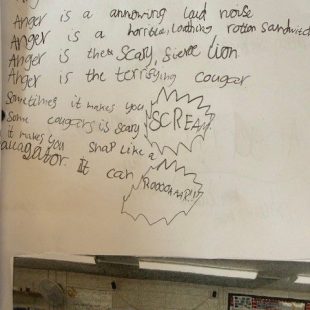 Anger is a annowing laud noise
Anger is a horrible, loathing rotton sandwitch
Anger is the scary, sierce lion
Anger is the terrifying cougar
Sometimes it makes you SCREAM
Some cougars is scary
it makes you snap like a
gator. It can ROOOOAAAR!!!